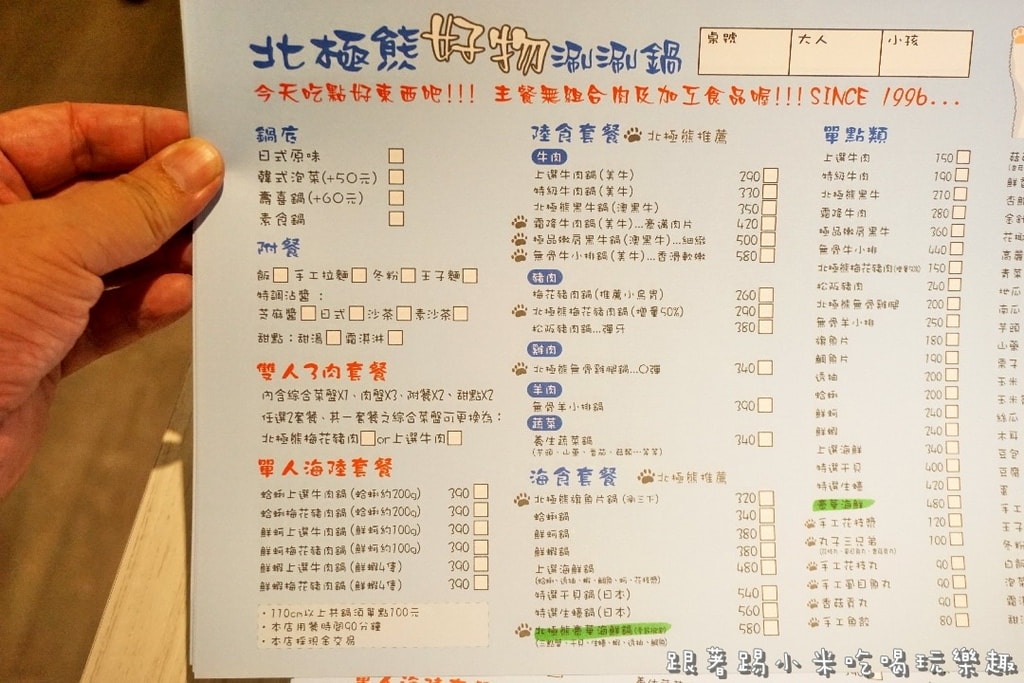 北極熊好物涮涮鍋
桌號 大人 小孩
今天吃點好東西吧!!! 主餐無組合肉及加工食品喔!!!SINCE 1996...
鍋底
日式原味
韓式泡菜(+50元)
壽喜鍋(+60元)
素食鍋
附餐
飯 手工拉麵 冬粉 王子麵
特調沾醬：
芝麻醬 日式 沙茶 素沙茶
甜點：甜湯 霜淇淋
雙人3肉套餐
內含綜合菜盤X1、肉盤X3、附餐X2、甜點X2
任選2套餐、其一套餐之綜合菜盤可更換為：
北極熊梅花豬肉 or上選牛肉
單人海陸套餐
蛤蜊上選牛肉鍋(蛤蜊約200g) 390
蛤蜊梅花豬肉鍋(蛤蜊約200g) 390
鮮蚵上選牛肉鍋(鮮蚵約100g) 390
鮮蚵梅花豬肉鍋(鮮蚵約100g) 390
鮮蝦上選牛肉鍋(鮮蝦4隻) 390
鮮蝦梅花豬肉鍋(鮮蝦4隻) 390
・110cm以上共鍋須單點100元
・本店用餐時間90分鐘
・本店採現金交易
陸食套餐 北極熊推薦
牛肉
上選牛肉鍋(美牛) 290
特級牛肉鍋(美牛) 310
北極熊黑牛鍋(澳黑牛) 350
霜降牛肉鍋(美牛)...豪邁肉片 420
極品嫩肩黑牛鍋(澳黑牛)...細緻 500
無骨牛小排鍋(美牛)...香滑軟嫩 580
豬肉
梅花豬肉鍋(推薦小鳥胃) 260
北極熊梅花豬肉鍋(增量50%) 290
松阪豬肉鍋...彈牙 380
雞肉
北極熊無骨雞腿鍋...Q彈 340
羊肉
無骨羊小排鍋 390
蔬菜
養生蔬菜鍋 340
(芋頭、山藥、番茄、菇類...等等)
海食套餐 北極熊推薦
北極熊旗魚片鍋(涮三下) 320
蛤蜊鍋 340
鮮蚵鍋 380
鮮蝦鍋 380
上選海鮮鍋 480
(蛤蜊、透抽、蝦、鯛魚、蚵、花枝漿)
特選干貝鍋(日本) 540
特選生蠔鍋(日本) 560
北極熊豪華海鮮鍋 580
單點類
上選牛肉 150
特級牛肉 190
北極熊黑牛 210
霜降牛肉 280
極品嫩肩黑牛 360
無骨牛小排 440
北極熊梅花豬肉(增量50%) 150
松阪豬肉 240
北極熊無骨雞腿 200
無骨羊小排 250
旗魚片 180
鯛魚片 190
透抽 200
蛤蜊 200
鮮蚵 240
鮮蝦 240
上選海鮮 340
特選干貝 400
特選生蠔 420
豪華海鮮 480
手工花枝漿 120
丸子三兄弟 100
手工花枝丸 90
手工虱目魚丸 90
香菇貢丸 90
手工魚餃 80
跟著踢小米吃喝玩樂趣